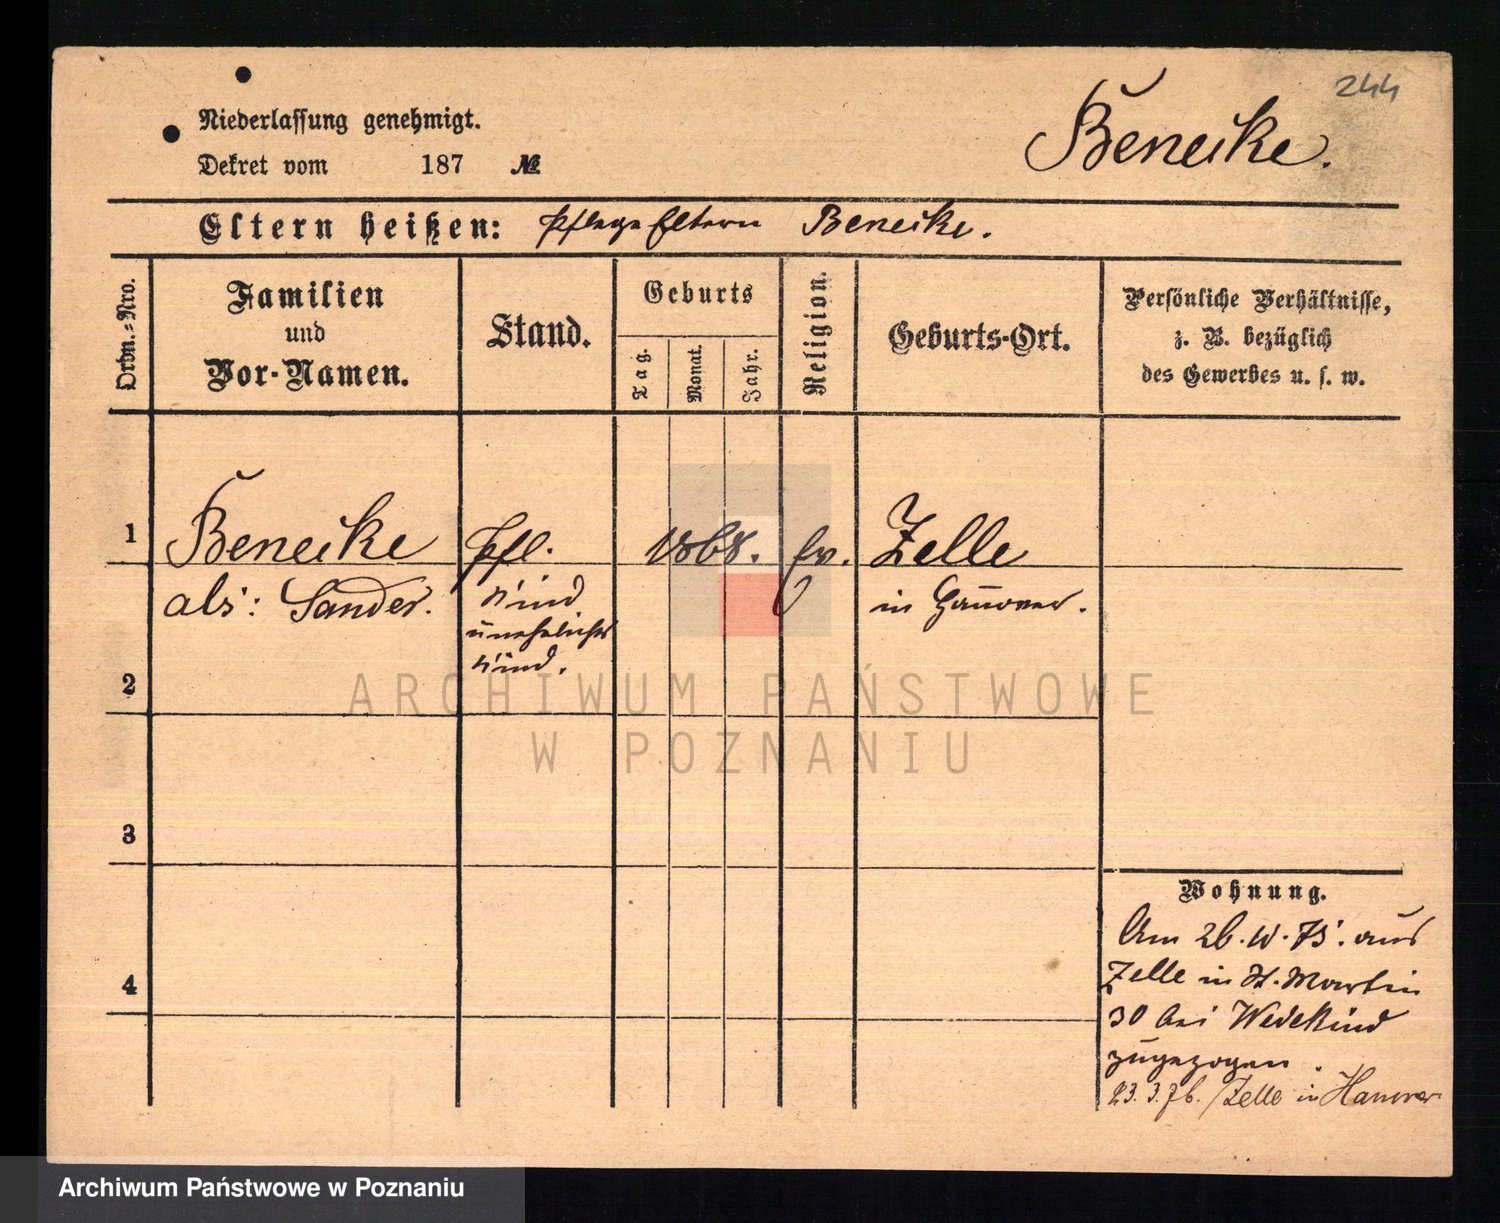 244
Niederlassung genehmigt.
Dekret vom 187 №
Beneike.
Eltern heißen: Pflege Eltern Beneike.
Ordn.=Nro.
Familien
und
Vor-Namen.
Stand.
Geburts
Tag.
Monat.
Jahr.
Religion.
Geburts-Ort.
Persönliche Verhältnisse,
z. B. bezüglich
des Gewerbes u. s. w.
1 Beneike Pfl. 1868. ev. Zelle
als: Sander. Kind in Hanover.
unehliches
Kind.
2
ARCHIWUM PAŃSTWOWE
W POZNANIU
3
4
Wohnung.
Am 26. 75. aus
Zelle in St. Martin
30 bei Wedekind
zugezogen.
23.3.76. Zelle in Hanover
Archiwum Państwowe w Poznaniu